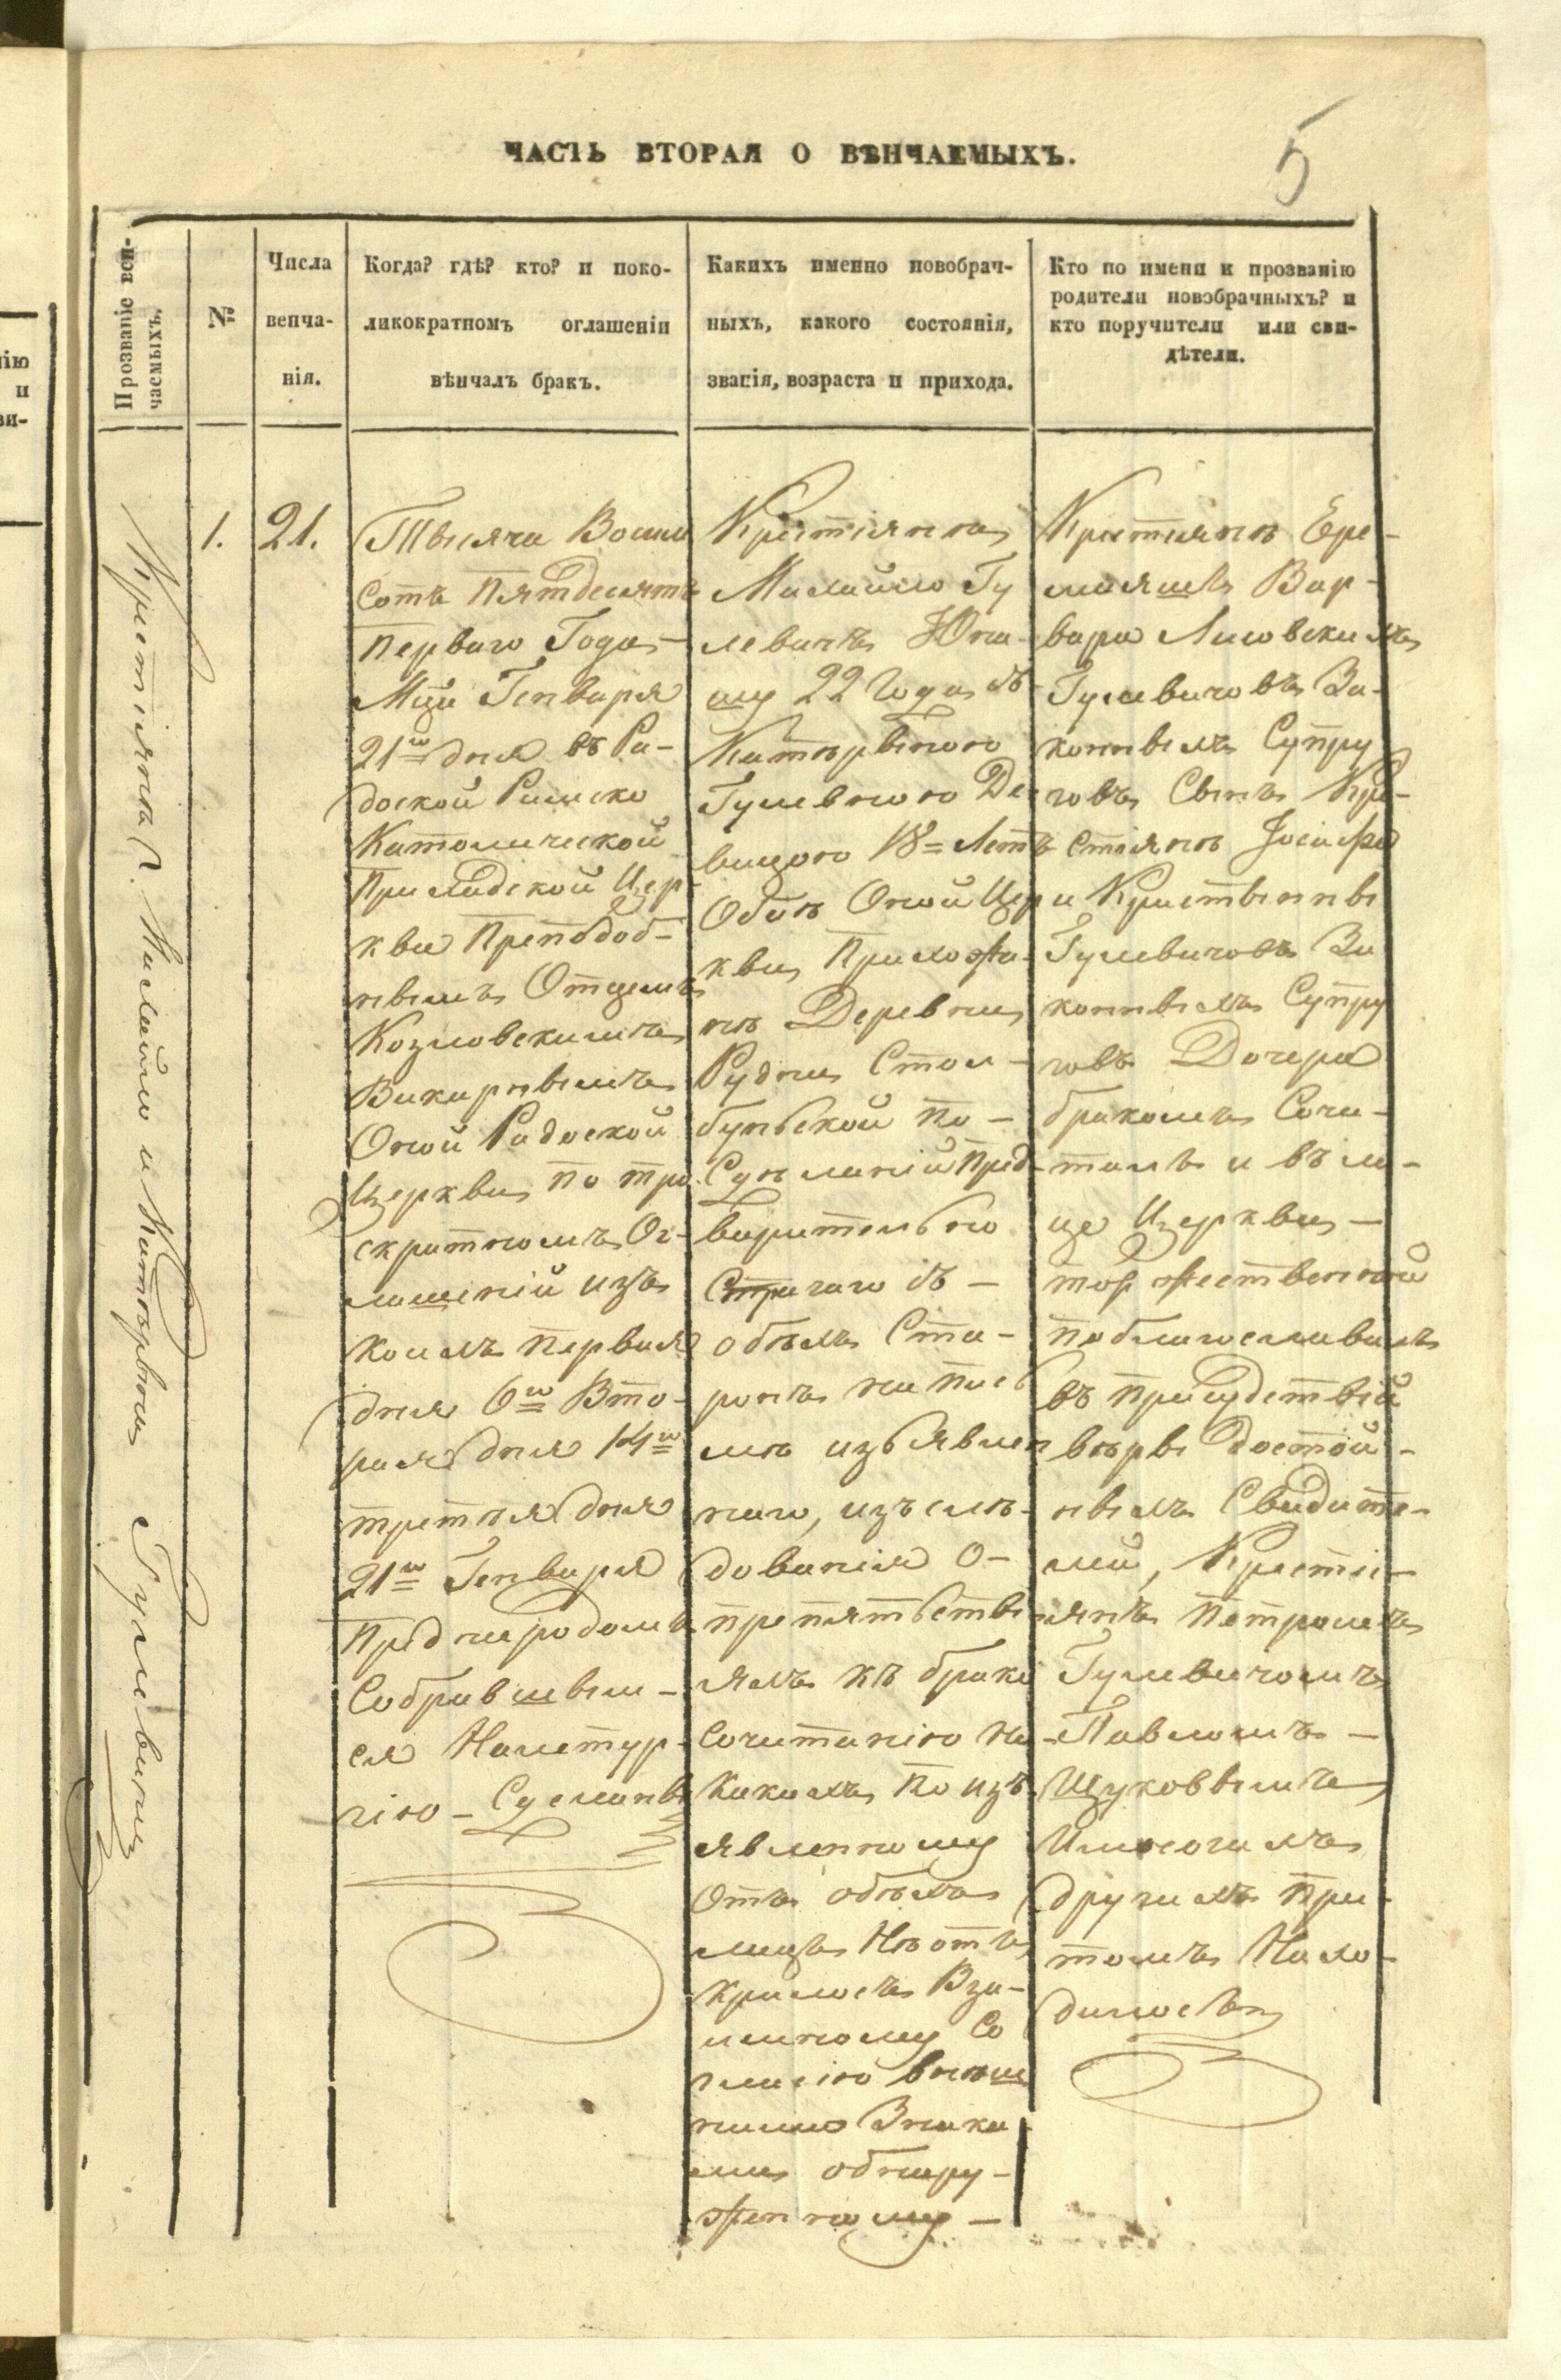 5
ЧАСТЬ ВТОРАЯ О ВѢНЧАЕМЫХЪ.
Прозваніе вѣн-
чаемыхъ.
№
Числа
венча-
нія.
Когда? гдѣ? кто? и поко-
ликократномъ оглашеніи
вѣнчалъ бракъ.
Какихъ именно новобрач-
ныхъ, какого состоянія,
званія, возраста и прихода.
Кто по имени и прозванію
родители новобрачныхъ? и
кто поручители или сви-
дѣтели.
Гулевичи
1.
21.
Тысяча Восим
Сотъ Пятдесятъ
Перваго Года
Мца Генваря
21го дня въ Ра-
доской Римско
Католической
Цер-
кви Преподоб-
нымъ Отцемъ
Козловскимъ
Викарнымъ
Оной Радоской
Церкви, по тро
скратномъ Ог-
лашеній изъ
коихъ Первая
дня 6го Вто-
рая дня 14го
третія дня
21го Генваря
Предъ народомъ
Собравшим-
ся На
гію
Михайло Гу
левичъ Юно-
шу 22 Года съ
Гулевною Де
вицою 18= Летъ
Обоя Оной Цер
кви, Прихожа-
нъ Деревни
Рудни Стол-
буньской по-
Пред-
варительно
Строгаго съ-
обѣихъ Сто-
ронъ на пись
мѣ изъявлен
наго, изъслѣ-
дованія о-
препятьстві
яхъ къ брако
Сочитанію Ни-
Какихъ По изъ
явленному
Отъ обѣихъ
лицъ Неотъ
крылось Вза-
имному Со
гласію
Знака
ми обнару-
женному —
Крестянъ Ере-
Вар-
вары Лисовскихъ
Гулевичовъ За-
конныхъ Супру
говъ Сынъ Кре-
стіянъ Іосифа
и Кристыны
Гулевичовъ За
конныхъ Супру
говъ Дочера
бракомъ Сочи-
талъ и въ ли-
це Церкви —
торжественной
поблагославилъ
въ Присудствій
вѣры достой-
ныхъ Свидите-
лей, Кресті-
янъ Петромъ
Гулевичомъ
Павломъ —
Щуковымъ
И многихъ
другихъ При
томъ Нахо-
дилось